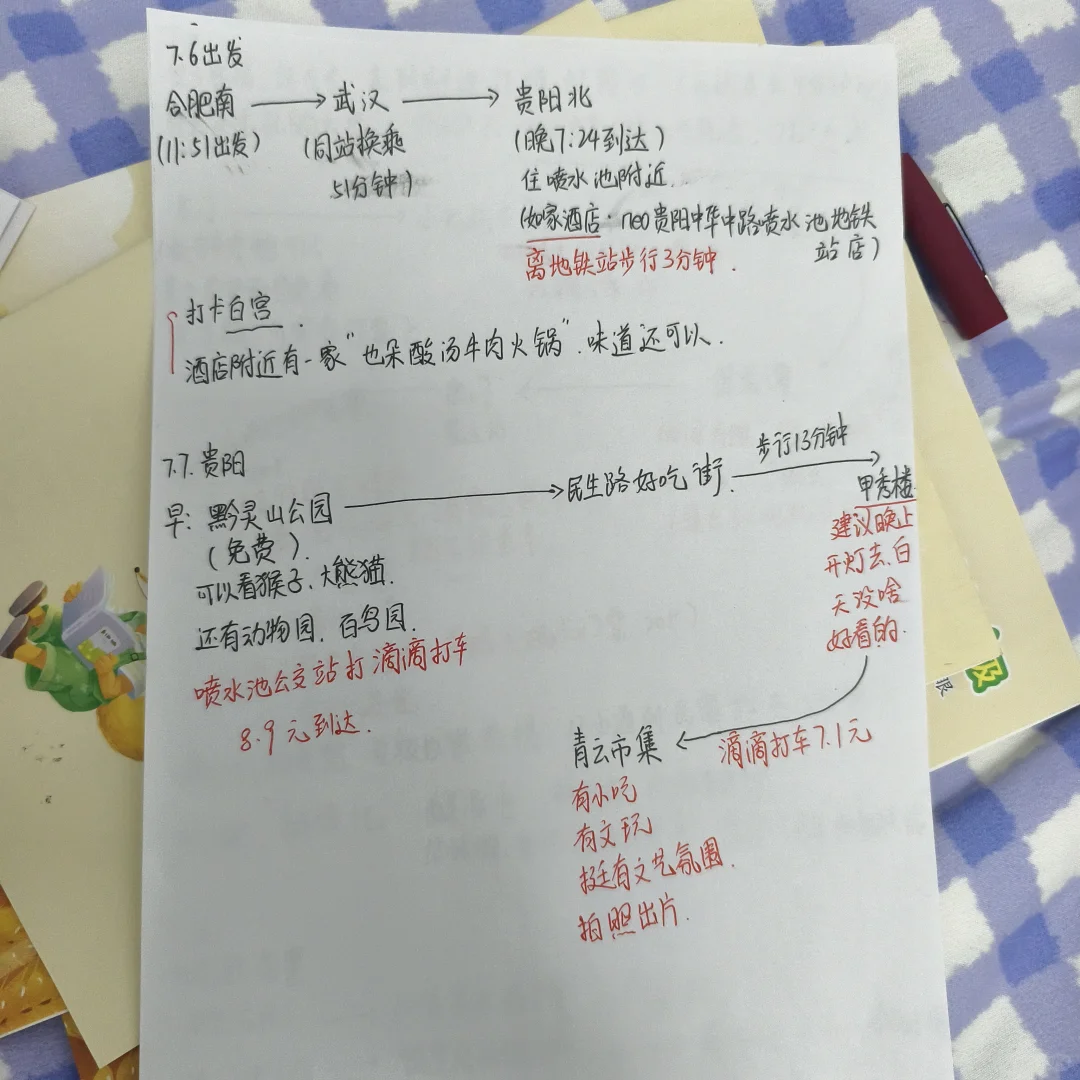 7.6出发
合肥南 → 武汉 → 贵阳北
(11:51出发) (同站换乘 (晚7:24到达)
51分钟) 住喷水池附近.
(如家酒店·neo贵阳中华中路喷水池地铁
站店)
离地铁站步行3分钟.
打卡白宫.
酒店附近有一家"也朵酸汤牛肉火锅".味道还可以.
7.7.贵阳
早: 黔灵山公园 → 民生路好吃街. 步行13分钟 → 甲秀楼
(免费).
可以看猴子、大熊猫.
还有动物园. 百鸟园.
喷水池公交站打滴滴打车
8.9元到达.
建议晚上
开灯去.白
天没啥
好看的.
青云市集 ← 滴滴打车7.1元
有小吃
有文玩
挺有文艺氛围.
拍照出片.